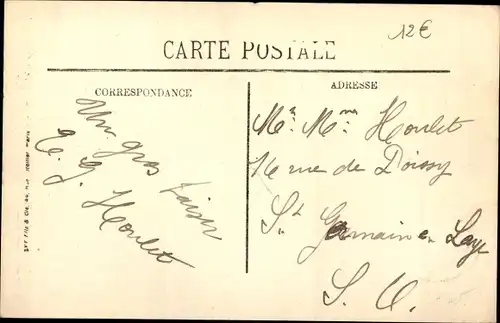 12€
CARTE POSTALE
CORRESPONDANCE
ADRESSE
Un gros baiser
E. G. Houlet
Mr. Mme Houlet
16 rue de Poissy
St Germain en Laye
S. O.